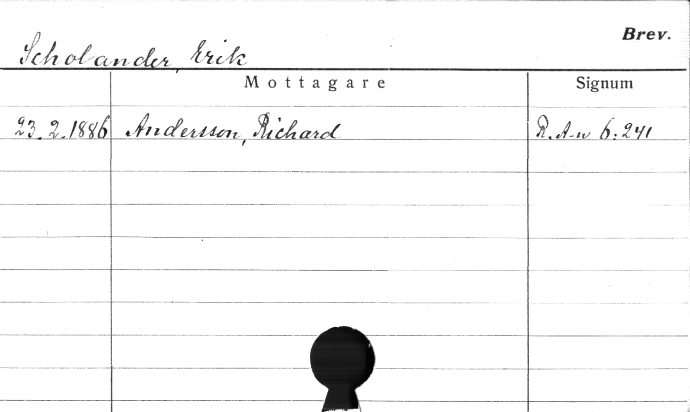 Brev.
Scholander, Erik
Mottagare Signum
23.2.1886 Andersson, Richard R.A-n 6:241